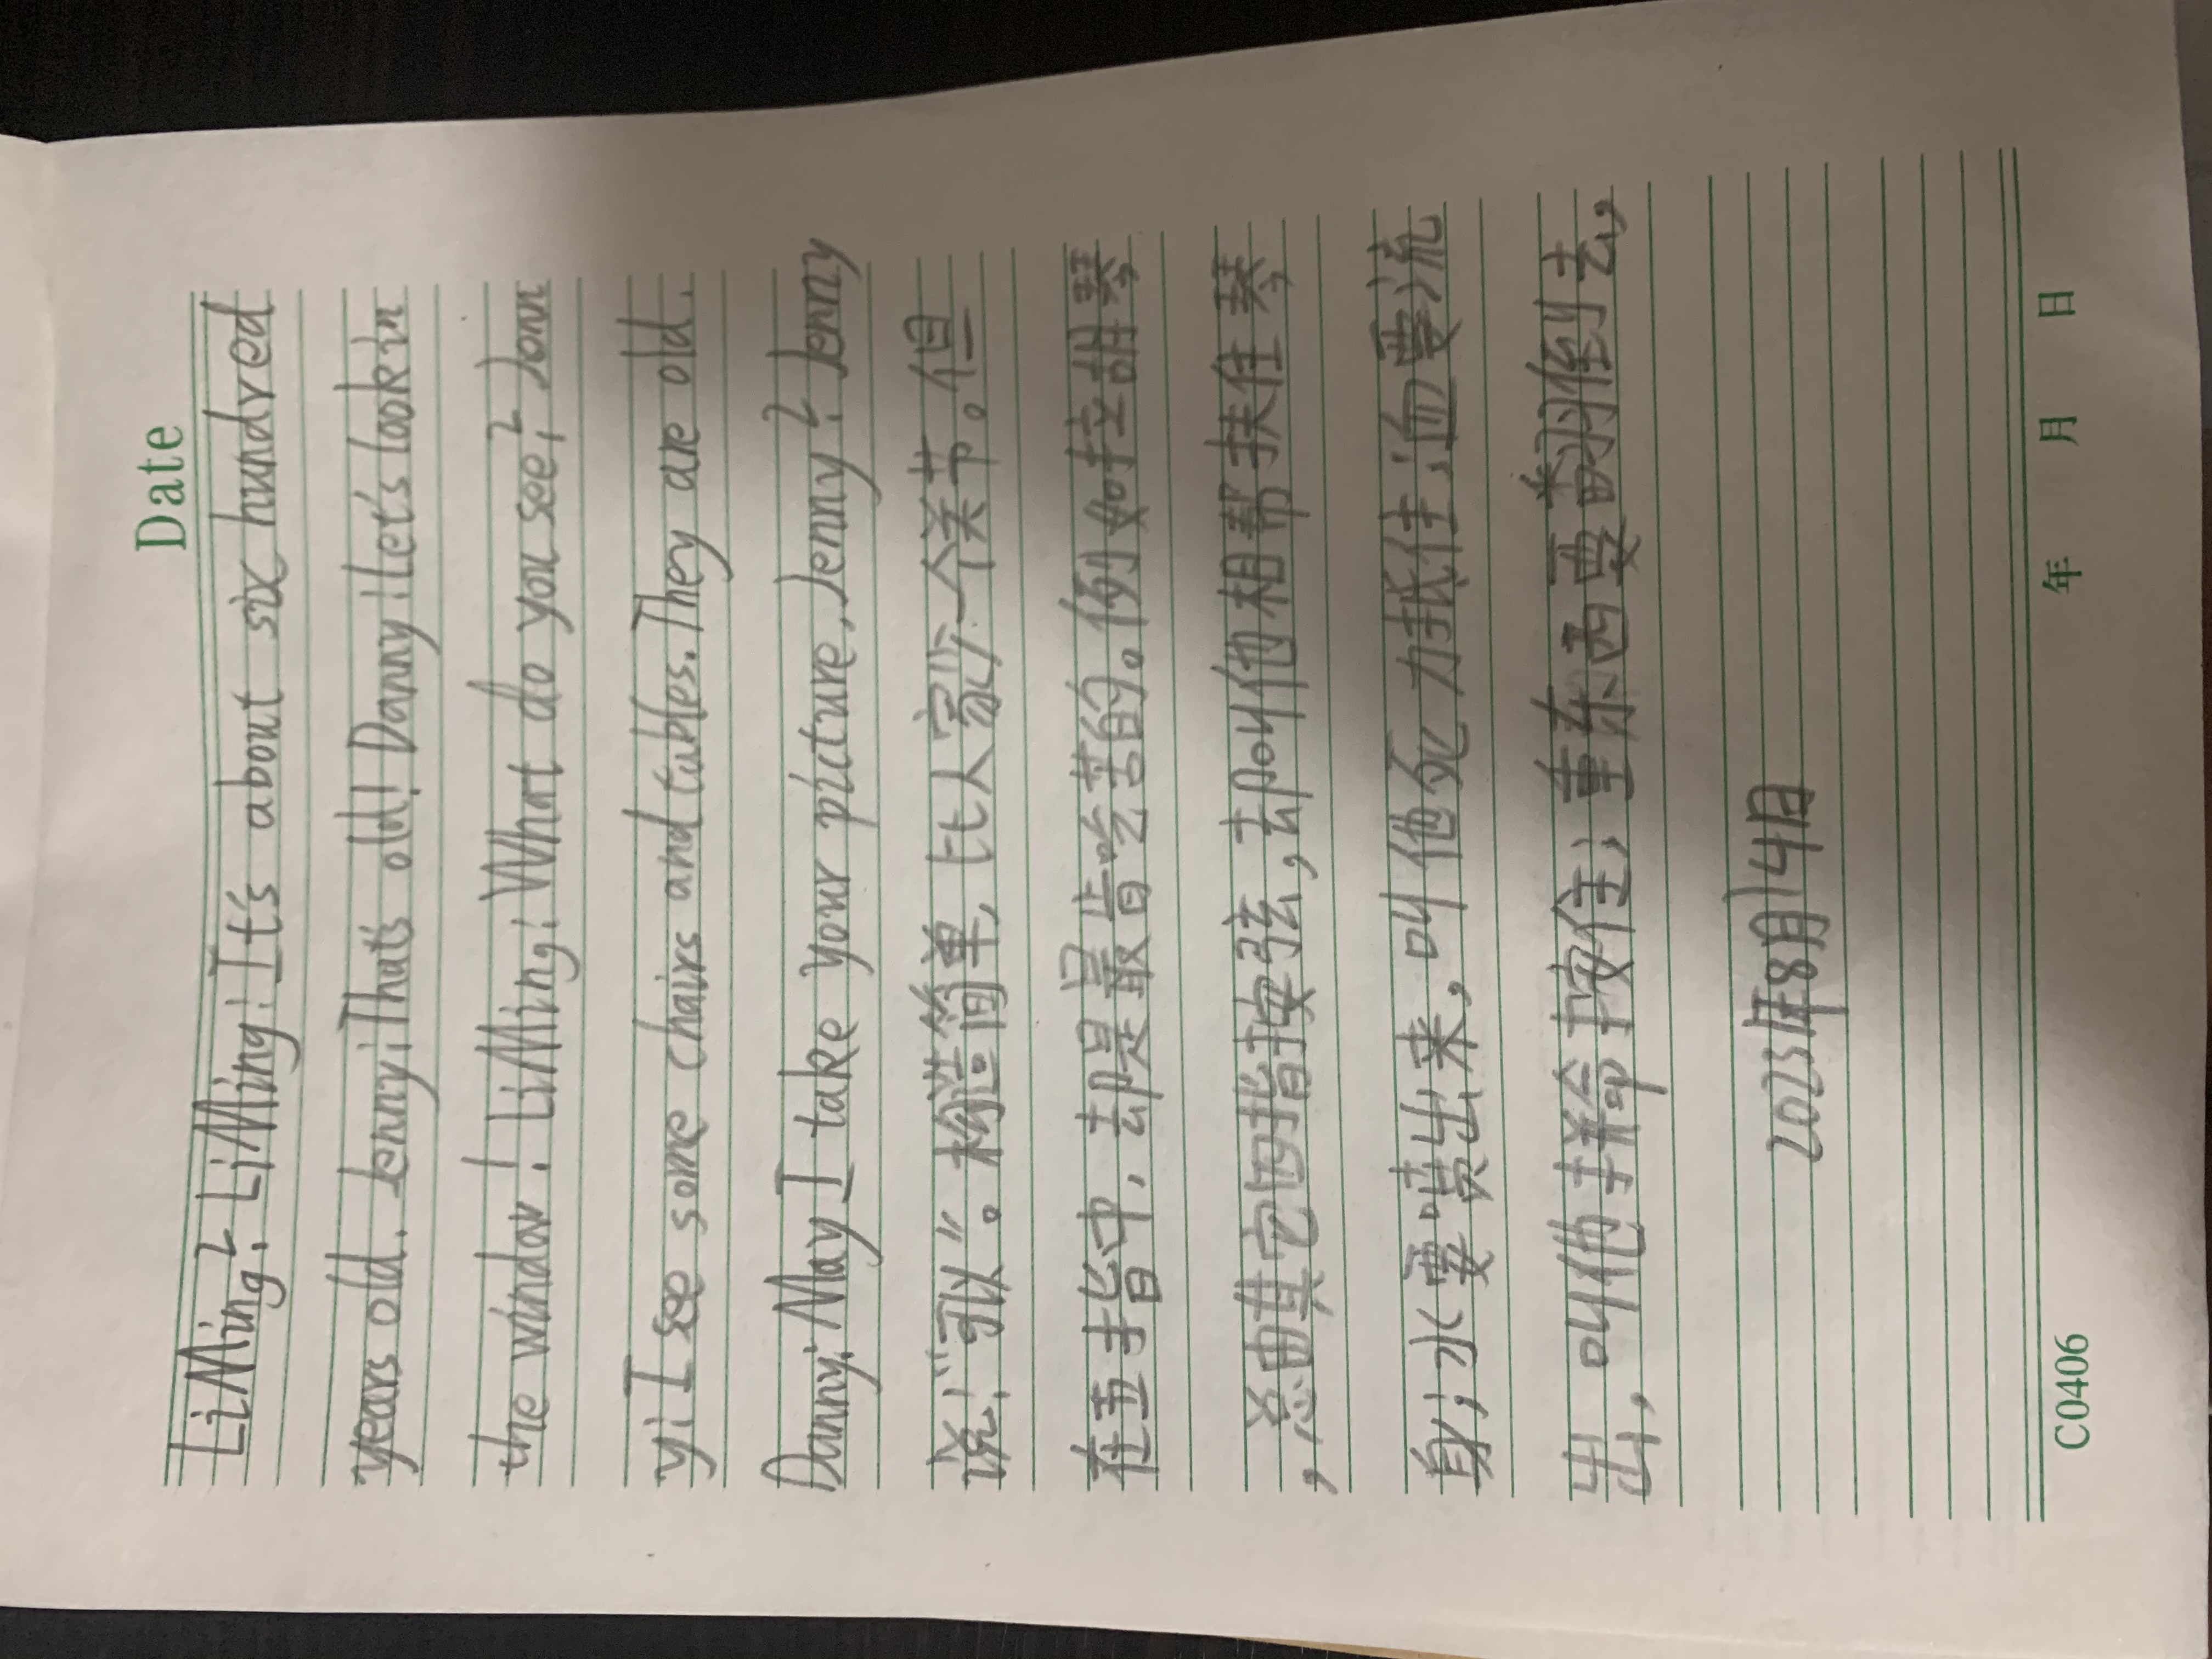 Date
LiMing? LiMing: It's about six hundred
years old. Jenny: That's old! Danny: Let's look in
the window! LiMing: What do you see? Jenn
y: I see some chairs and tables. They are old.
Danny: May I take your picture, Jenny? Jenny
说:“可以”。构造简单,比人家少一个关节。但
在五指中,却是最肯吃苦的。例如拉胡琴
,总由其它四指按弦,却叫他相帮扶住琴
身;水要喷出来,叫他死力抵住;血要流
出,叫他拼命按住;重东西要翻倒去,
2023年8月14日
C0406 年 月 日